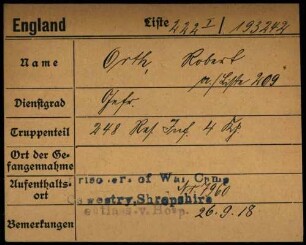 England Liste 222 I / 193242
Name Orth, Robert
n./Liste 209
Dienstgrad Gefr.
Truppenteil 248 Res Inf. 4 Kp
Ort der Gefangennahme
Aufenthaltsort Prisoners of War Camp
Nr. 7960
Oswestry, Shropshire
Bemerkungen 26.9.18